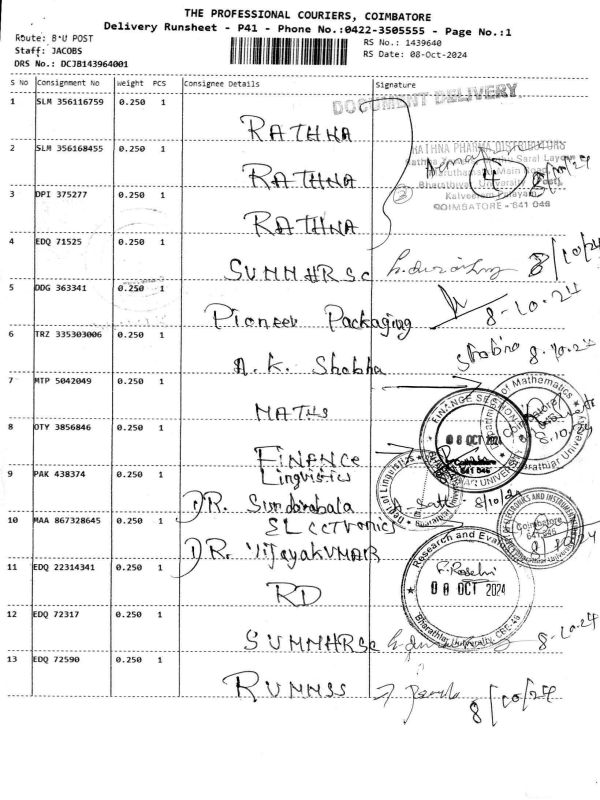 THE PROFESSIONAL COURIERS, COIMBATORE
Delivery Runsheet - P41 - Phone No.:0422-3505555 - Page No.:1
Route: B*U POST
Staff: JACOBS
DRS No.: DCJB143964001
RS No.: 1439640
RS Date: 08-Oct-2024
S No Consignment No Weight PCS Consignee Details Signature
DOCUMENT DELIVERY
1 SLM 356116759 0.250 1 RATHNA
2 SLM 356168455 0.250 1 RATHNA
RATHNA PHARMA DISTRIBUTORS
Saral Layout
Main
Bharathiyar University
Kalveeram Palayam
COIMBATORE - 641 046
4
2
3 DPI 375277 0.250 1 RATHNA
4 EDQ 71525 0.250 1 SUMMHRSC 8/10/24
5 DDG 363341 0.250 1 Pioneer Packaging 8-10-24
6 TRZ 335303006 0.250 1 A.K. Shobha Shobha 8.10.24
7 MTP 5042049 0.250 1 MATHS
of Mathematics
Bharathiar University
8.10.24
8 OTY 3856846 0.250 1 FINANCE
FINANCE SECTION
08 OCT 2024
641 046
9 PAK 438374 0.250 1 Linguistics
DR. Sundarabala
Dept of Linguistics
8/10/24
10 MAA 867328645 0.250 1 ELECTRONICS
DR. VijayaKUMAR
Coimbatore
641 046
11 EDQ 22314341 0.250 1 RD
Research and Eva
08 OCT 2024
Bharathiar University, CBE-46
12 EDQ 72317 0.250 1 SUMMHRSC 8-10-24
13 EDQ 72590 0.250 1 RUMMSS 8/10/24